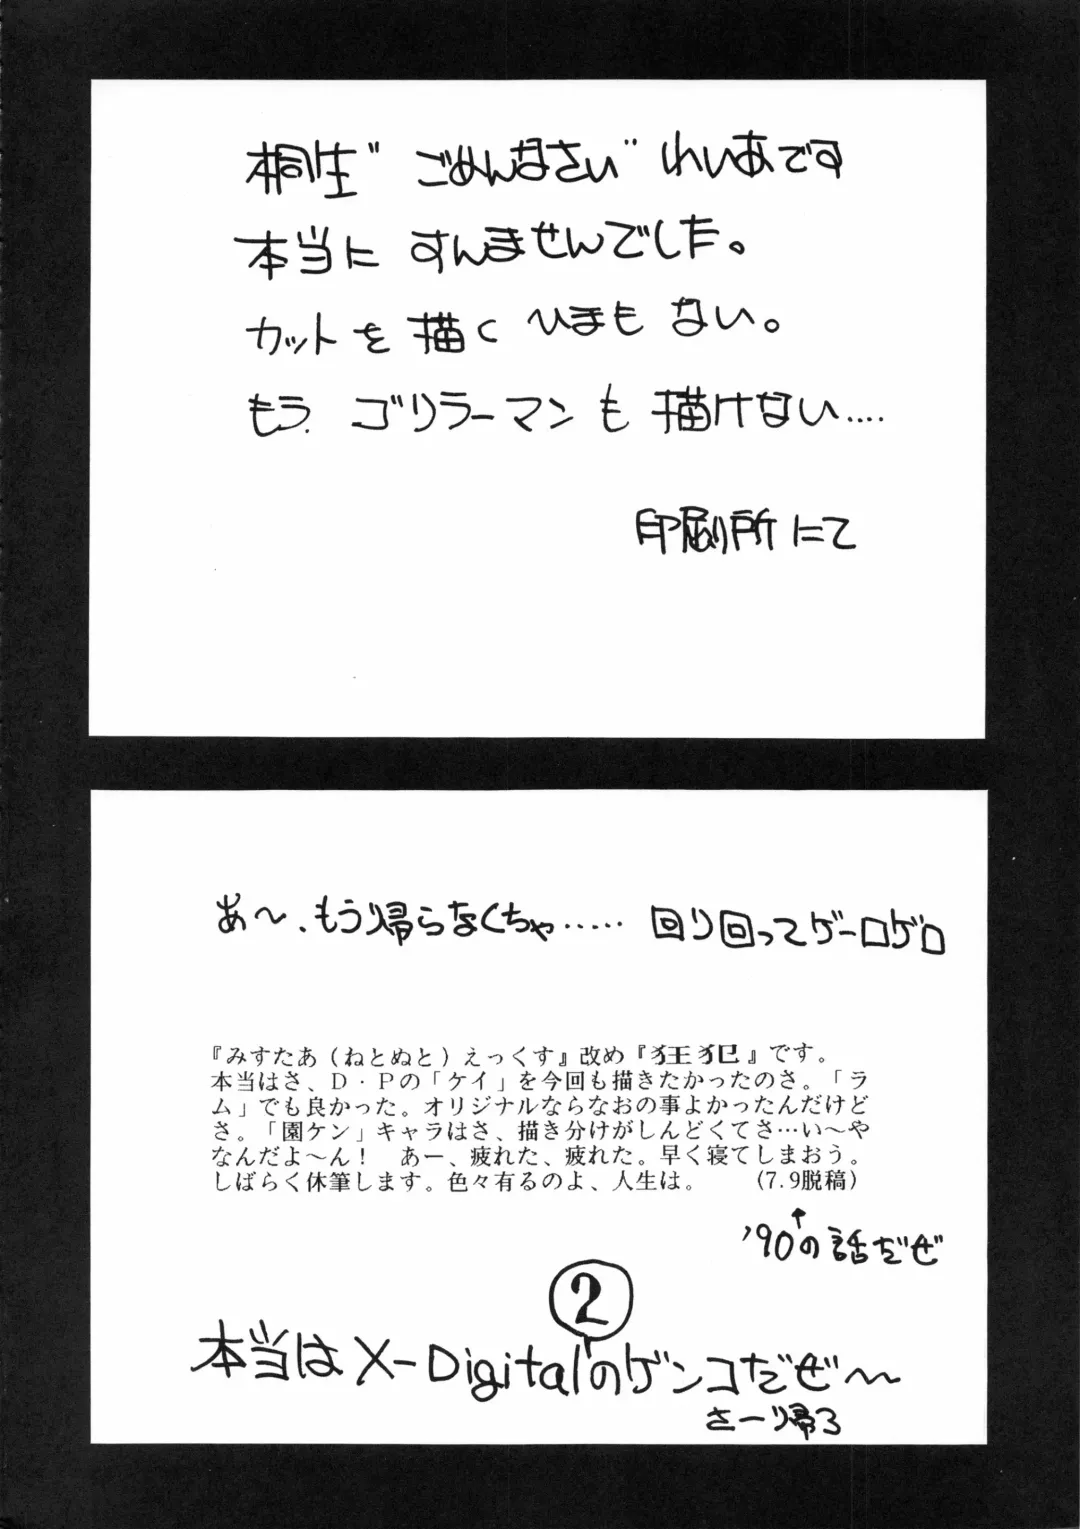 桐生"ごめんなさい"れいあです
本当に すんませんでした。
カットを描く ひまも ない。
もう. ゴリラーマンも 描けない‥‥
印刷所にて
あ〜、もう帰らなくちゃ…… 回り回ってゲーロゲロ
『みすたあ(ねとぬと)えっくす』改め『狂犯』です。
本当はさ、D・Pの「ケイ」を今回も描きたかったのさ。「ラ
ム」でも良かった。オリジナルならなおの事よかったんだけど
さ。「園ケン」キャラはさ、描き分けがしんどくてさ…い〜や
なんだよ〜ん! あー、疲れた、疲れた。早く寝てしまおう。
しばらく休筆します。色々有るのよ、人生は。 (7.9脱稿)
'90の話だぜ
本当はX-Digital②のゲンコだぜ〜
さーり帰ろ